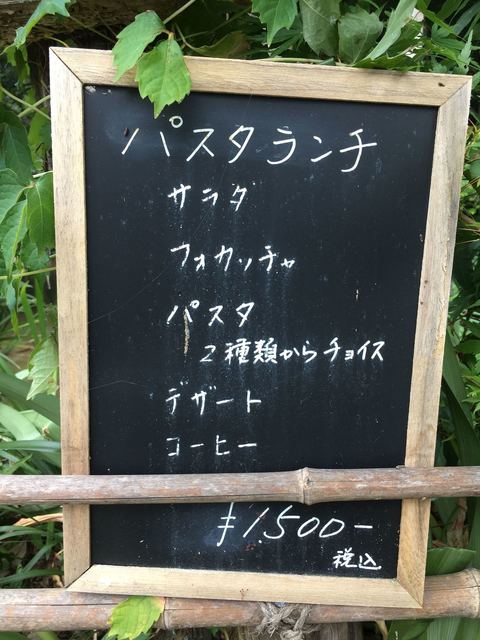 パスタランチ
サラダ
フォカッチャ
パスタ
2種類からチョイス
デザート
コーヒー
¥1,500-
税込